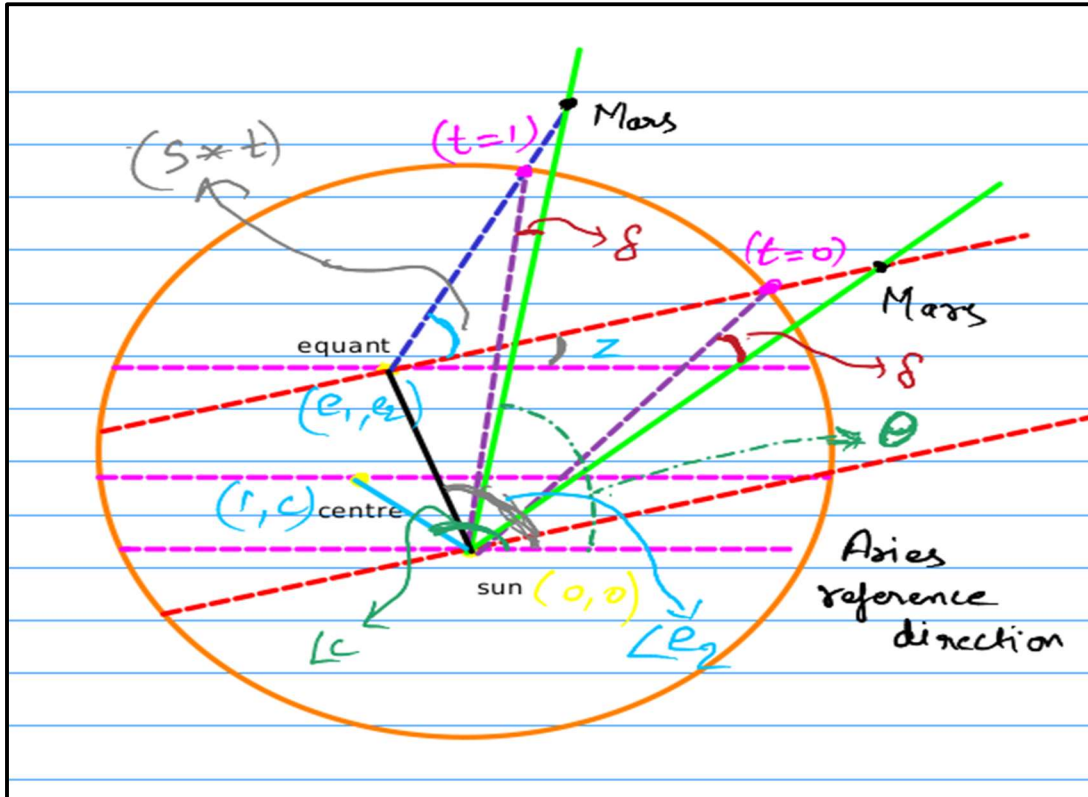 Mars
(t=1)
(S*t)
δ
(t=0)
Mars
equant
z
δ
(e1, e2)
θ
(1, c) centre
sun (0,0)
Aries
reference
direction
∠c
∠e2